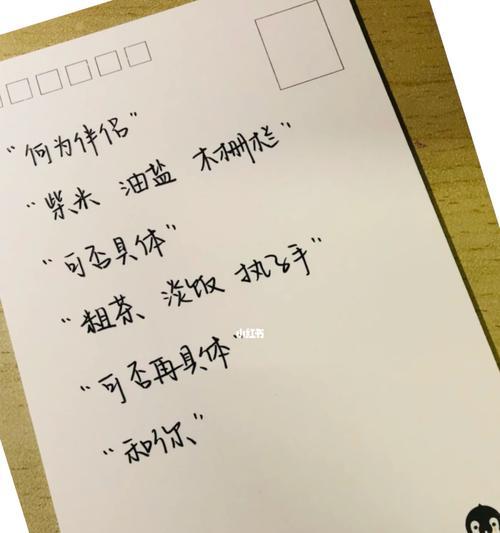 “何为伴侣”
“柴米 油盐 木栅栏”
“可否具体”
“粗茶、淡饭 执飞手”
小红书
“可否再具体”
“和你”